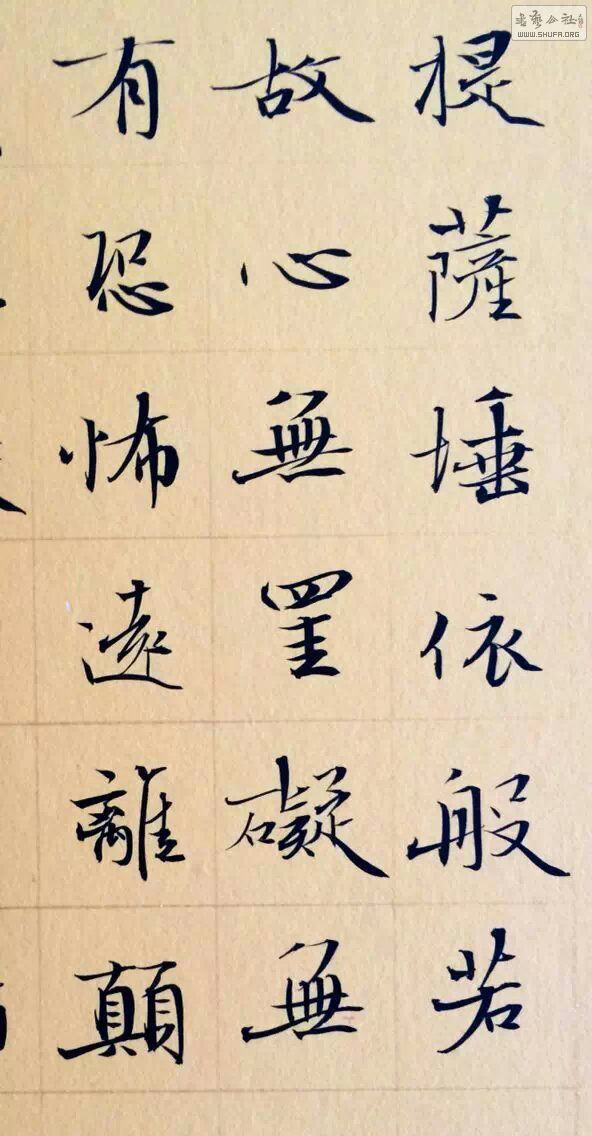 提薩埵依般若
故心無罣礙無
有恐怖遠離顛
書藝公社
WWW.SHUFA.ORG